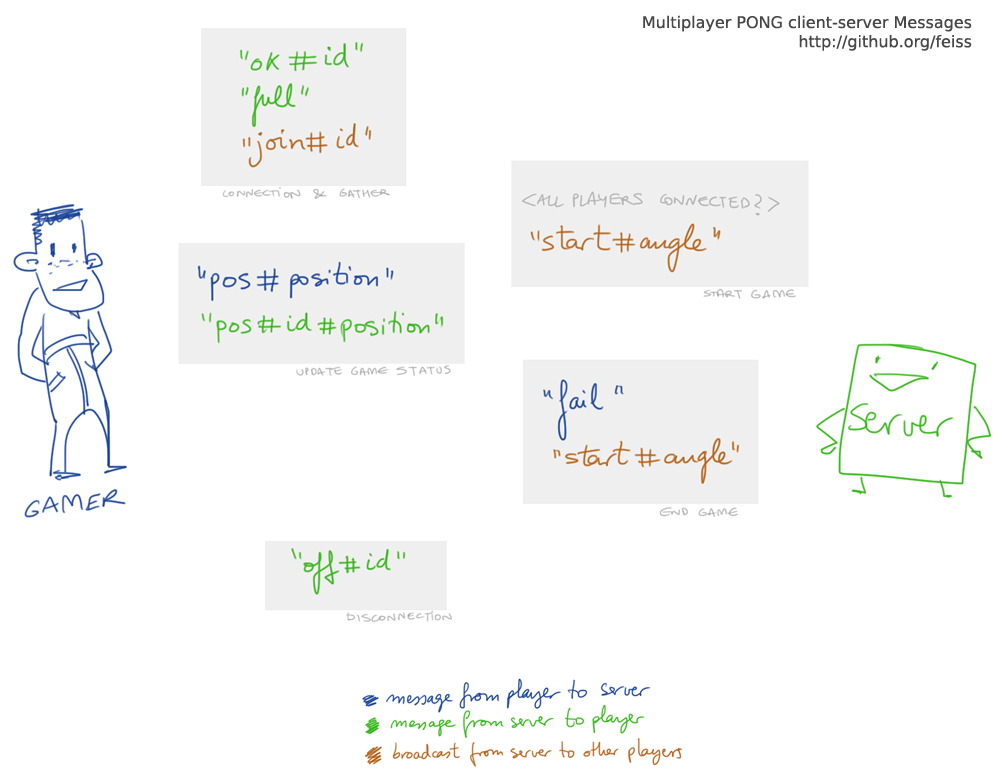 Multiplayer PONG client-server Messages
http://github.org/feiss
"ok#id"
"full"
"join#id"
CONNECTION & GATHER
<ALL PLAYERS CONNECTED?>
"start#angle"
START GAME
"pos#position"
"pos#id#position"
UPDATE GAME STATUS
"fail"
"start#angle"
END GAME
server
GAMER
"off#id"
DISCONNECTION
message from player to server
message from server to player
broadcast from server to other players